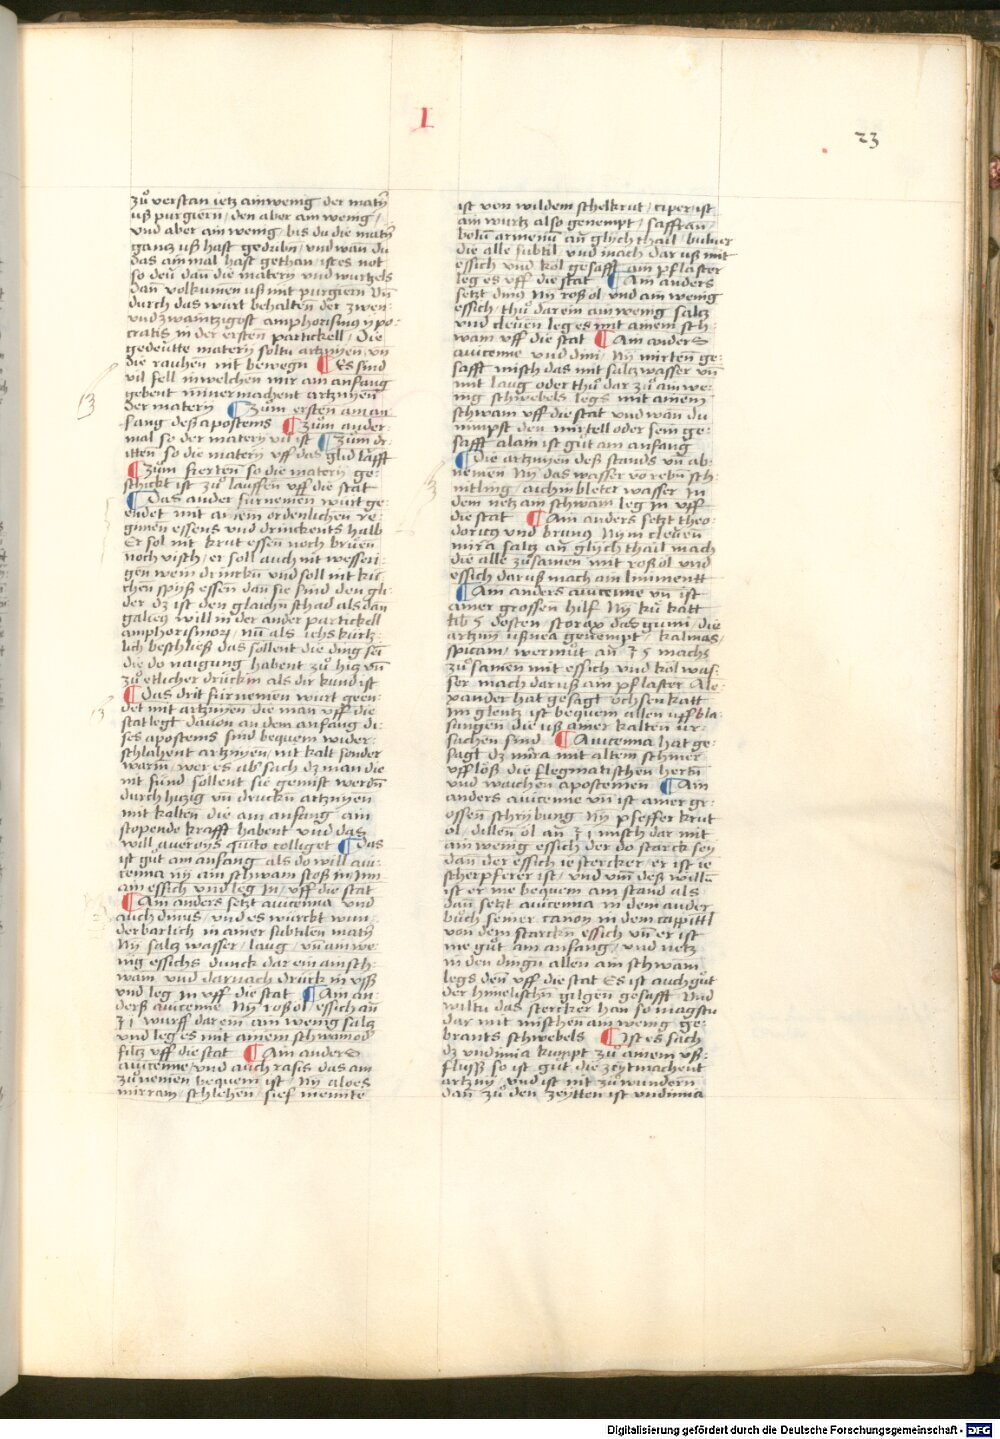 I
23
zů verstan ietz ainwenig der matrÿ
uß purgiern / den aber ain wenig /
und aber ain wenig / bis du die matrÿ
gantz uß hast gedribn / und wan du
das ain mal hast gethan / ist es not
so den dan die matery und wurtzels
dan volkumen uß mit purgiern Un̄
durch das wurt behalten der zwen-
und zwaintzigost amphorismus ypo-
cratis in der ersten partickell / Die
gedeutte matery soltu artznyen / un̄
die rauhen nit bewegn ¶ Es sind
vil fell in welchen mir am anfang
gebent nim̄er machent artznyen
der matery ¶ Zum ersten am an
fang deß apostems ¶ Zům ander-
mal so der matery vil ist ¶ Zům dr-
itten so die matery uff das glid lafft
¶ Zům fierten so die matery ge-
schickt ist zů lauffen uff die stat
¶ Das ander fürnemen wurt ge-
endet mit ainem ordenlichen re-
gimen essens und drinckents halb
Er sol nit krut essen noch brüen
noch visch / er soll auch nit wesseri-
gen wein drinckn̄ und soll nit kü-
chen spyß essen dan sie sind den gli-
der dz ist den glaichn̄ schad als dan
galieg will in der ander partickell
amphorismorz / nu als ichs kürtz-
lich beschließ das sollent die ding sei
die do naigung habent zů hitz un̄
zů etlicher drückin als dir kund ist
¶ Das drit fürnemen wurt geen-
det mit artznyen die man uff die
stat legt dauon an dem anfang di-
ses apostems sind bequem wider-
schlahent artznyen / nit kalt sonder
warm / wer es ab sach dz man die
nit fünd sollent sie gemist werdn̄
durch hitzig un̄ druckn̄ artznyen
mit kalten die am anfang ain
stopende krafft habent und das
will aueroys quito colliget ¶ Das
ist gůt am anfang als do will aui-
cenna nÿ ain schwam stoß in / im
ain essich und leg in / uff die stat
¶ Ain anders setzt auicenna und
auch dinus / und es würckt wun
derbarlich in ainer subtilen matrÿ
Nÿ saltz wasser / laug / un̄ ain we-
nig essichs dunck dar ein ain sch-
wam und darnach drück in uß
und leg in uff die stat ¶ Ain an
derß auicenne Nÿ roß öl / essich an̄
℥ i wurff darein ain wenig saltz
und leg es mit ainem schwam od'
filtz uff die stat ¶ Ain anders
auicenne / und auch rasis das am
zů nemen bequem ist / Nÿ aloes
mirram / schlehen / sief memite
ist von wildem schelkrut / ciper ist
ain wurtz also genempt / saffran /
bolū armenū an̄ glych thail / buluer
die alle subtil und mach dar uß mit
essich und köl gesafft ain pflaster
leg es uff die stat ¶ Ain anders
setzt dinꝯ Nÿ roß öl und ain wenig
essich / thů darein ain wenig saltz
und cleuen leg es mit ainem sch-
wam uff die stat ¶ Ain anders
auicenne und dini / Nÿ mirten ge-
safft misch das mit saltz wasser un̄
mit laug oder thů dar zů ain we-
nig schwebels legs mit ainem
schwam uff die stat und wan du
nimpst den mirtell oder sein ge-
safft alain ist gůt am anfang
¶ Die artznyen deß stands un̄ ab-
nemen Nÿ das wasser vorebn̄ sch-
nitling / aichinbleter wasser In
dem netz ain schwam leg in uff
die stat ¶ Ain anders setzt theo-
doricꝯ und brunꝯ Nÿm cleuen
mirra saltz an̄ glych thail mach
die alle zůsamen mit roß öl und
essich dar uß mach ain liniment
¶ Ain anders auicenne un̄ ist
ainer grossen hilf Nÿ ků katt
lib 5 dosten storax das gumi / die
artzny usnea genempt / kalmas /
spicam / wermůt an̄ ℥ 5 machs
zůsamen mit essich und köl was-
ser mach dar uß ain pflaster Ale-
xander hat gesagt ochsen katt
im glentz ist bequem allen uffbla-
sungen die uß ainer kalten ur-
sachen sind ¶ Auicenna hat ge-
sagt dz mira mit altem schmer
uff löß die flegmatischen hertn̄
und waichen apostemen ¶ Ain
anders auicenne un̄ ist ainer gr-
ossen schrybung Nÿ pfeffer krut
öl / dillen öl an̄ ℥ i misch dar mit
ain wenig essich der do starck sey
dan̄ der essich ie stercker / er ist ie
scherpferer ist / und um̄ deß willē
ist er me bequem am stand als
dan̄ setzt auicenna in dem ander
bůch seiner canon in dem cappittl
von dem starckn̄ essich un̄ er ist
me gůt am anfang / und netz
in den dingn̄ allen ain schwam
legs den̄ uff die stat Es ist auch gůt
der himelischn̄ gilgen gesafft Und
wiltu das stercker han so magstu
dar mit mischen ain wenig ge-
brants schwebels ¶ Ist es sach
dz undimia kumpt zů ainem uß-
fluß so ist gůt die zeytmachent
artzny und ist nit zů wundern
dan̄ zů den zeytten ist undimia
Digitalisierung gefördert durch die Deutsche Forschungsgemeinschaft - DFG